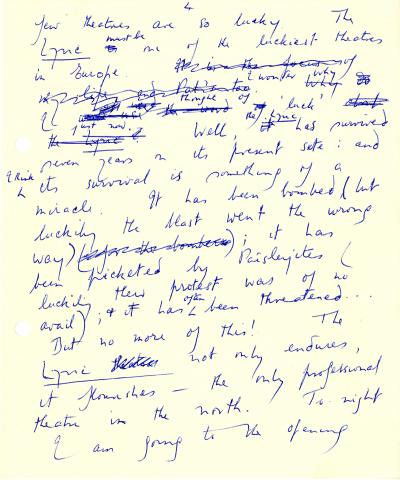 4
few theatres are so lucky. The
Lyric must be one of the luckiest theatres
in Europe. I wonder why
I thought of 'luck'
just now. Well, the Lyric has survived
seven years on its present site: and
I think its survival is something of a
miracle. It has been bombed (but
luckily the blast went the wrong
way); it has
been picketed by Paisleyites (
luckily their protest was of no
avail); & it has often been threatened...
But no more of this! The
Lyric not only endures,
it flourishes — the only professional
theatre in the north. To-night
I am going to the opening